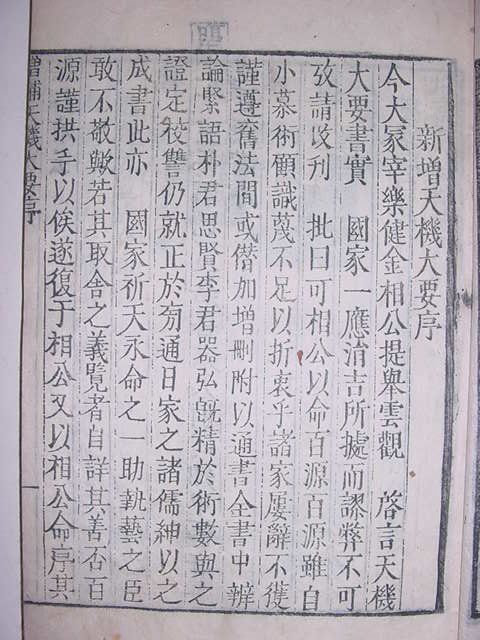 新增天機大要序
今大冢宰樂健金相公提舉雲觀 啓言天機
大要書實 國家一應涓吉所據而謬弊不可
攷請改刊 批曰可相公以命百源百源雖自
小慕術顧識蔑不足以折衷乎諸家屢辭不獲
謹遵舊法間或僭加增刪附以通書全書中辨
論緊語朴君思賢李君器弘旣精於術數與之
證定校讐仍就正於旁通日家之諸儒紳以之
成書此亦 國家祈天永命之一助執藝之臣
敢不敬歟若其取舍之義覽者自詳其善否百
源謹拱手以俟遂復于相公又以相公命序其
增補天機大要序 一